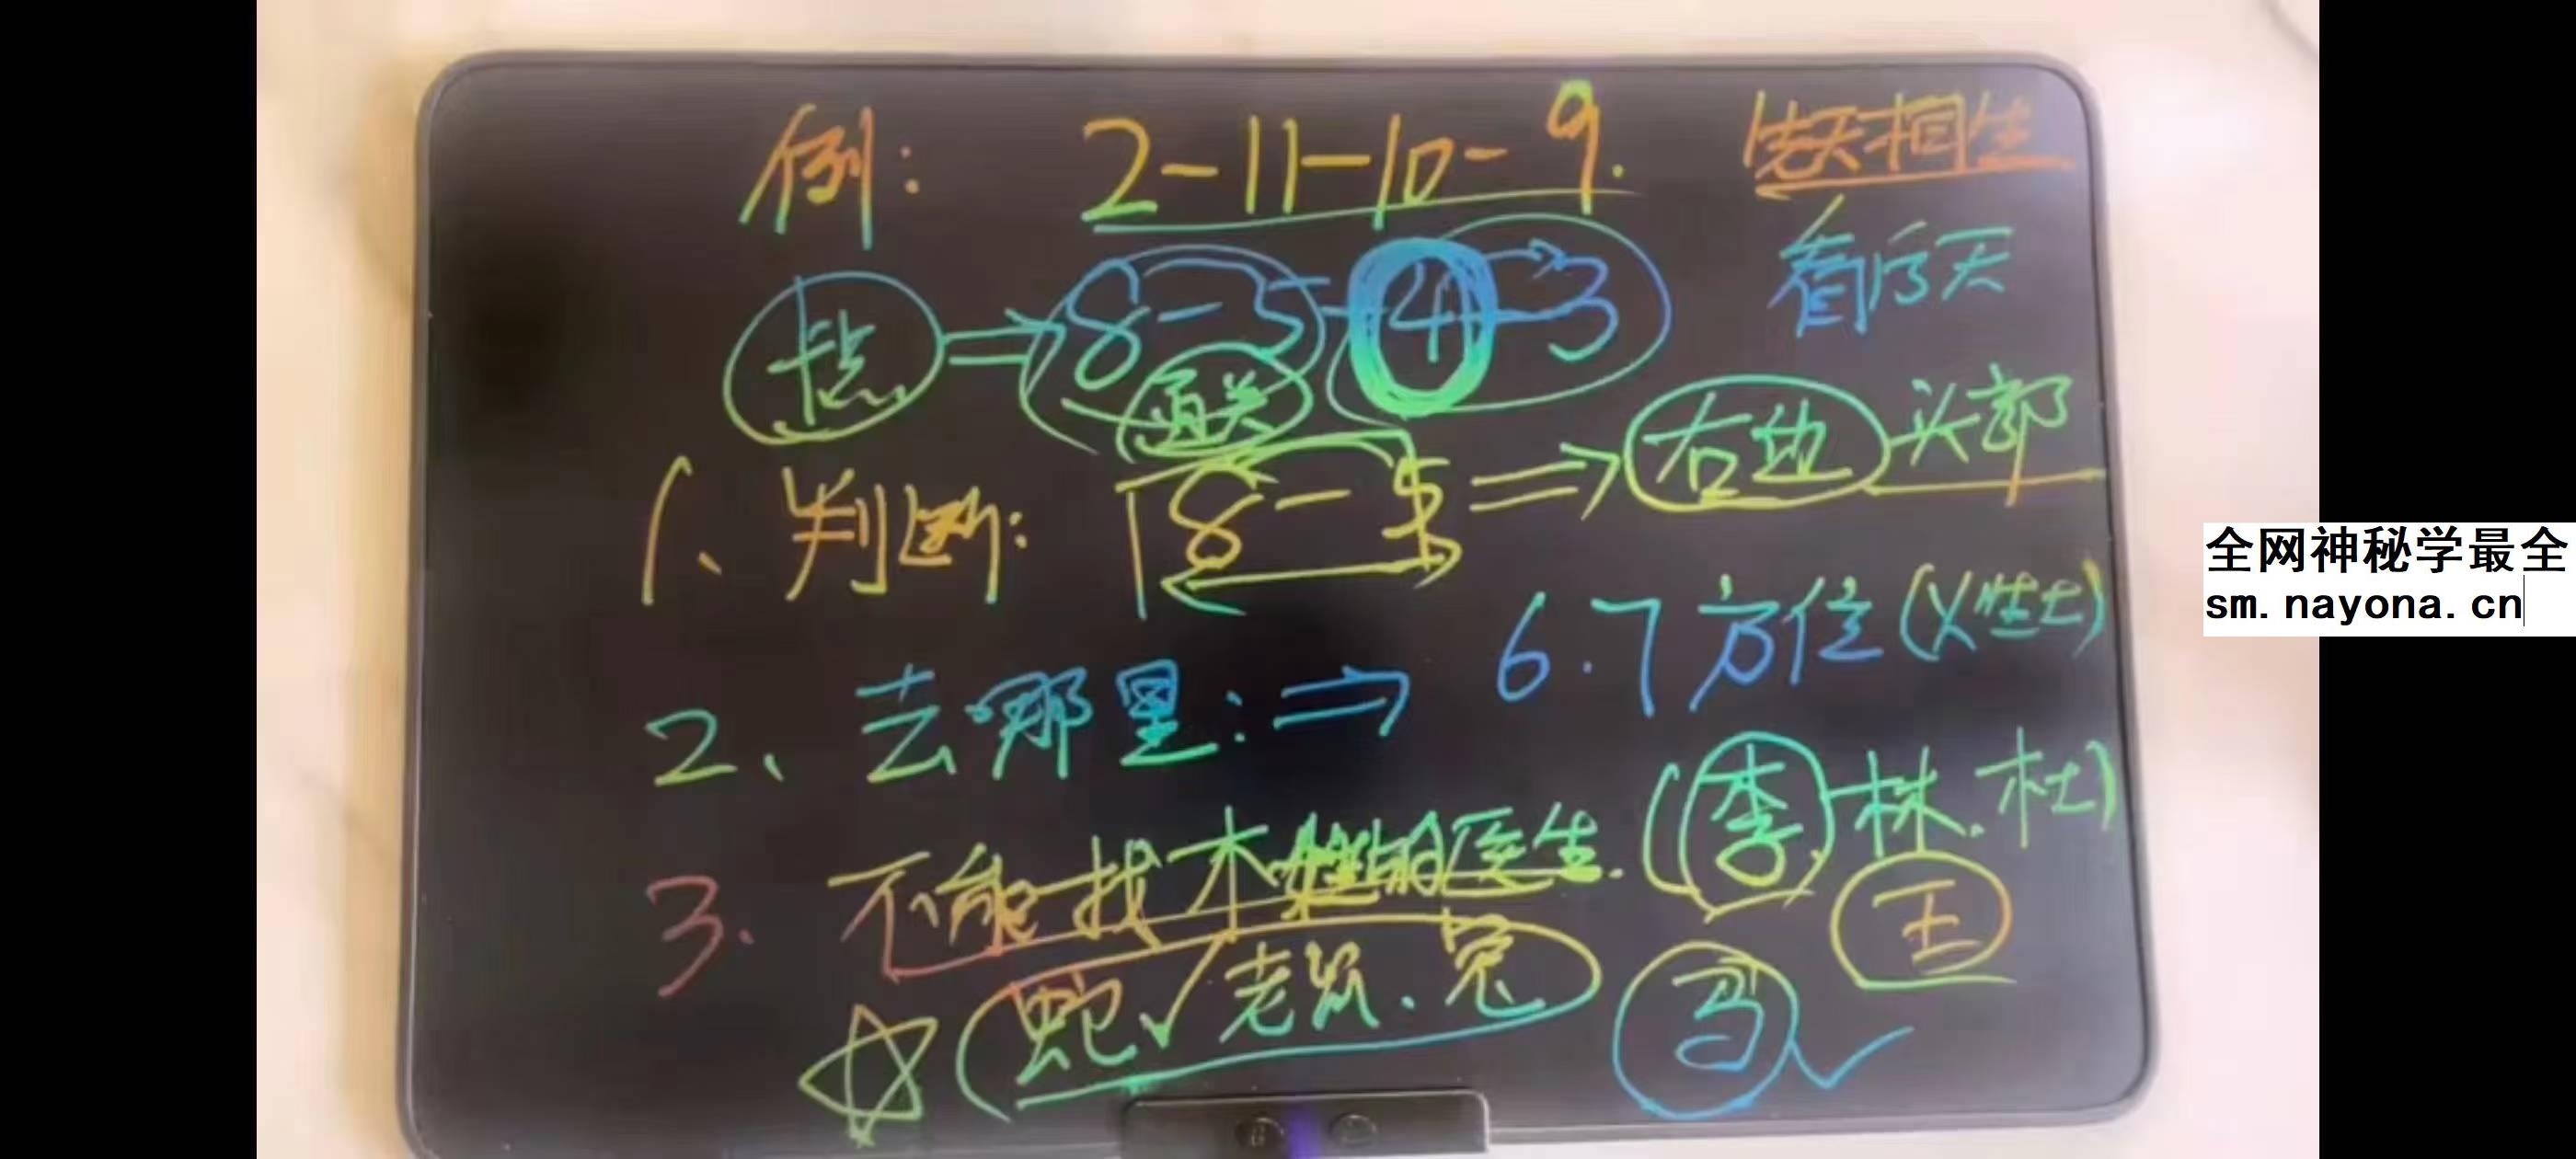 例： 2-11-10-9. 先天相生
卡点 ⇒ 8-5-4-3 看后天
通关
1、判断： 8-5 ⇒ 右边头部
2、去哪里：⇒ 6.7方位（火生土）
3. 不能找木姓的医生.（李林.杜）
王
☆（蛇√老鼠、兔） 马√
全网神秘学最全
sm.nayona.cn